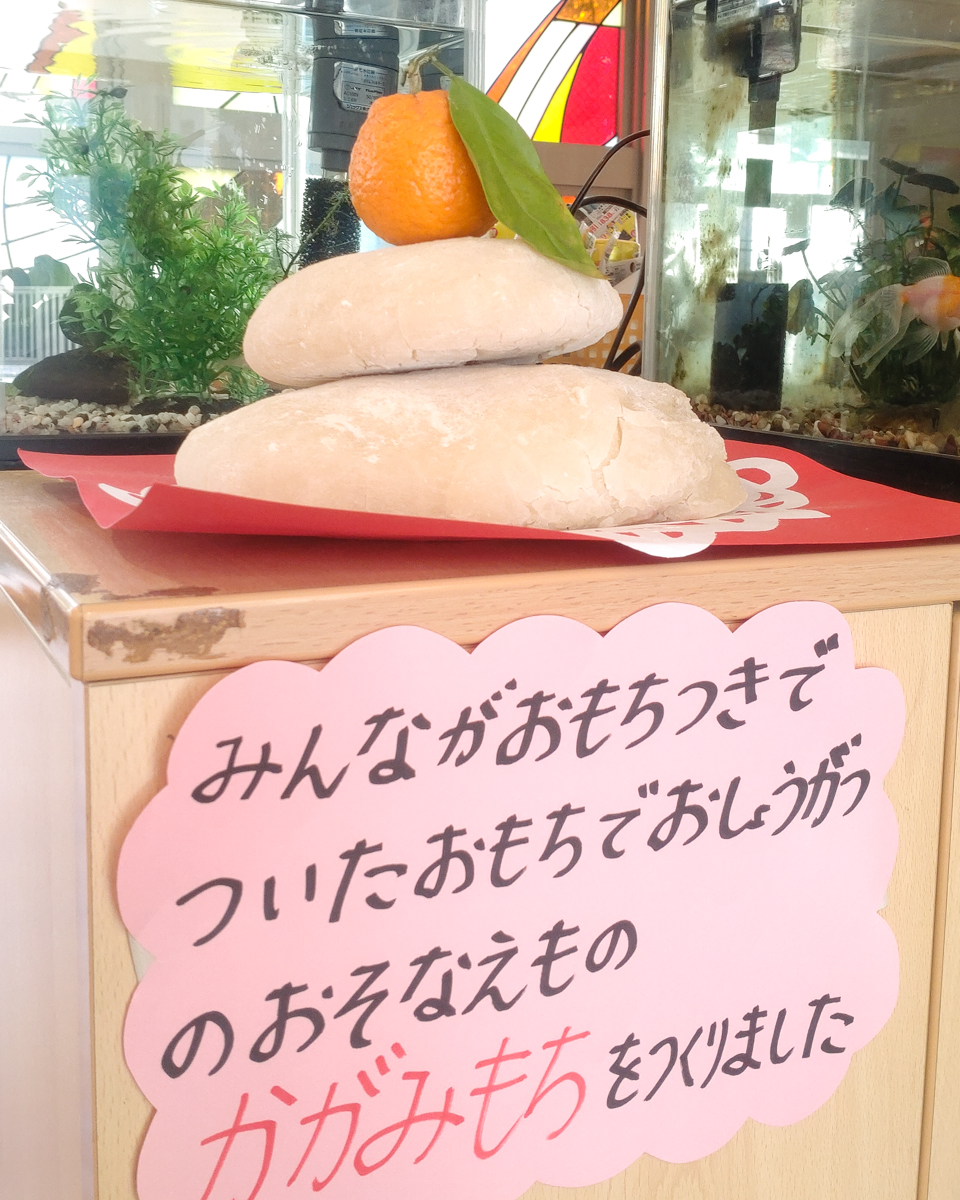 みんながおもちつきで
ついたおもちでおしょうがつ
のおそなえもの
かがみもちをつくりました